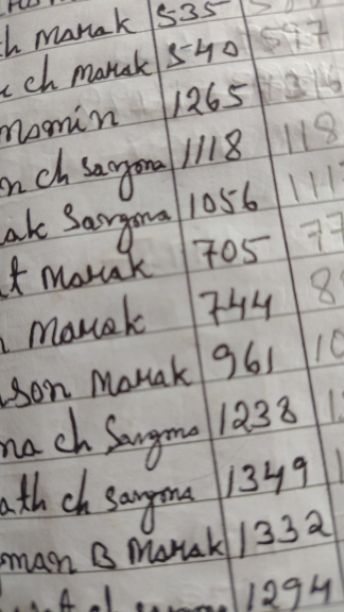 h Marak 535
ch Marak 540 597
momin 1265
n ch Sangma 1118 118
ak Sangma 1056 111
t Marak 705 77
Marak 744 8
son Marak 961 10
na ch Sangma 1238 1
ath ch Sangma 1349
man B Marak 1332
1294